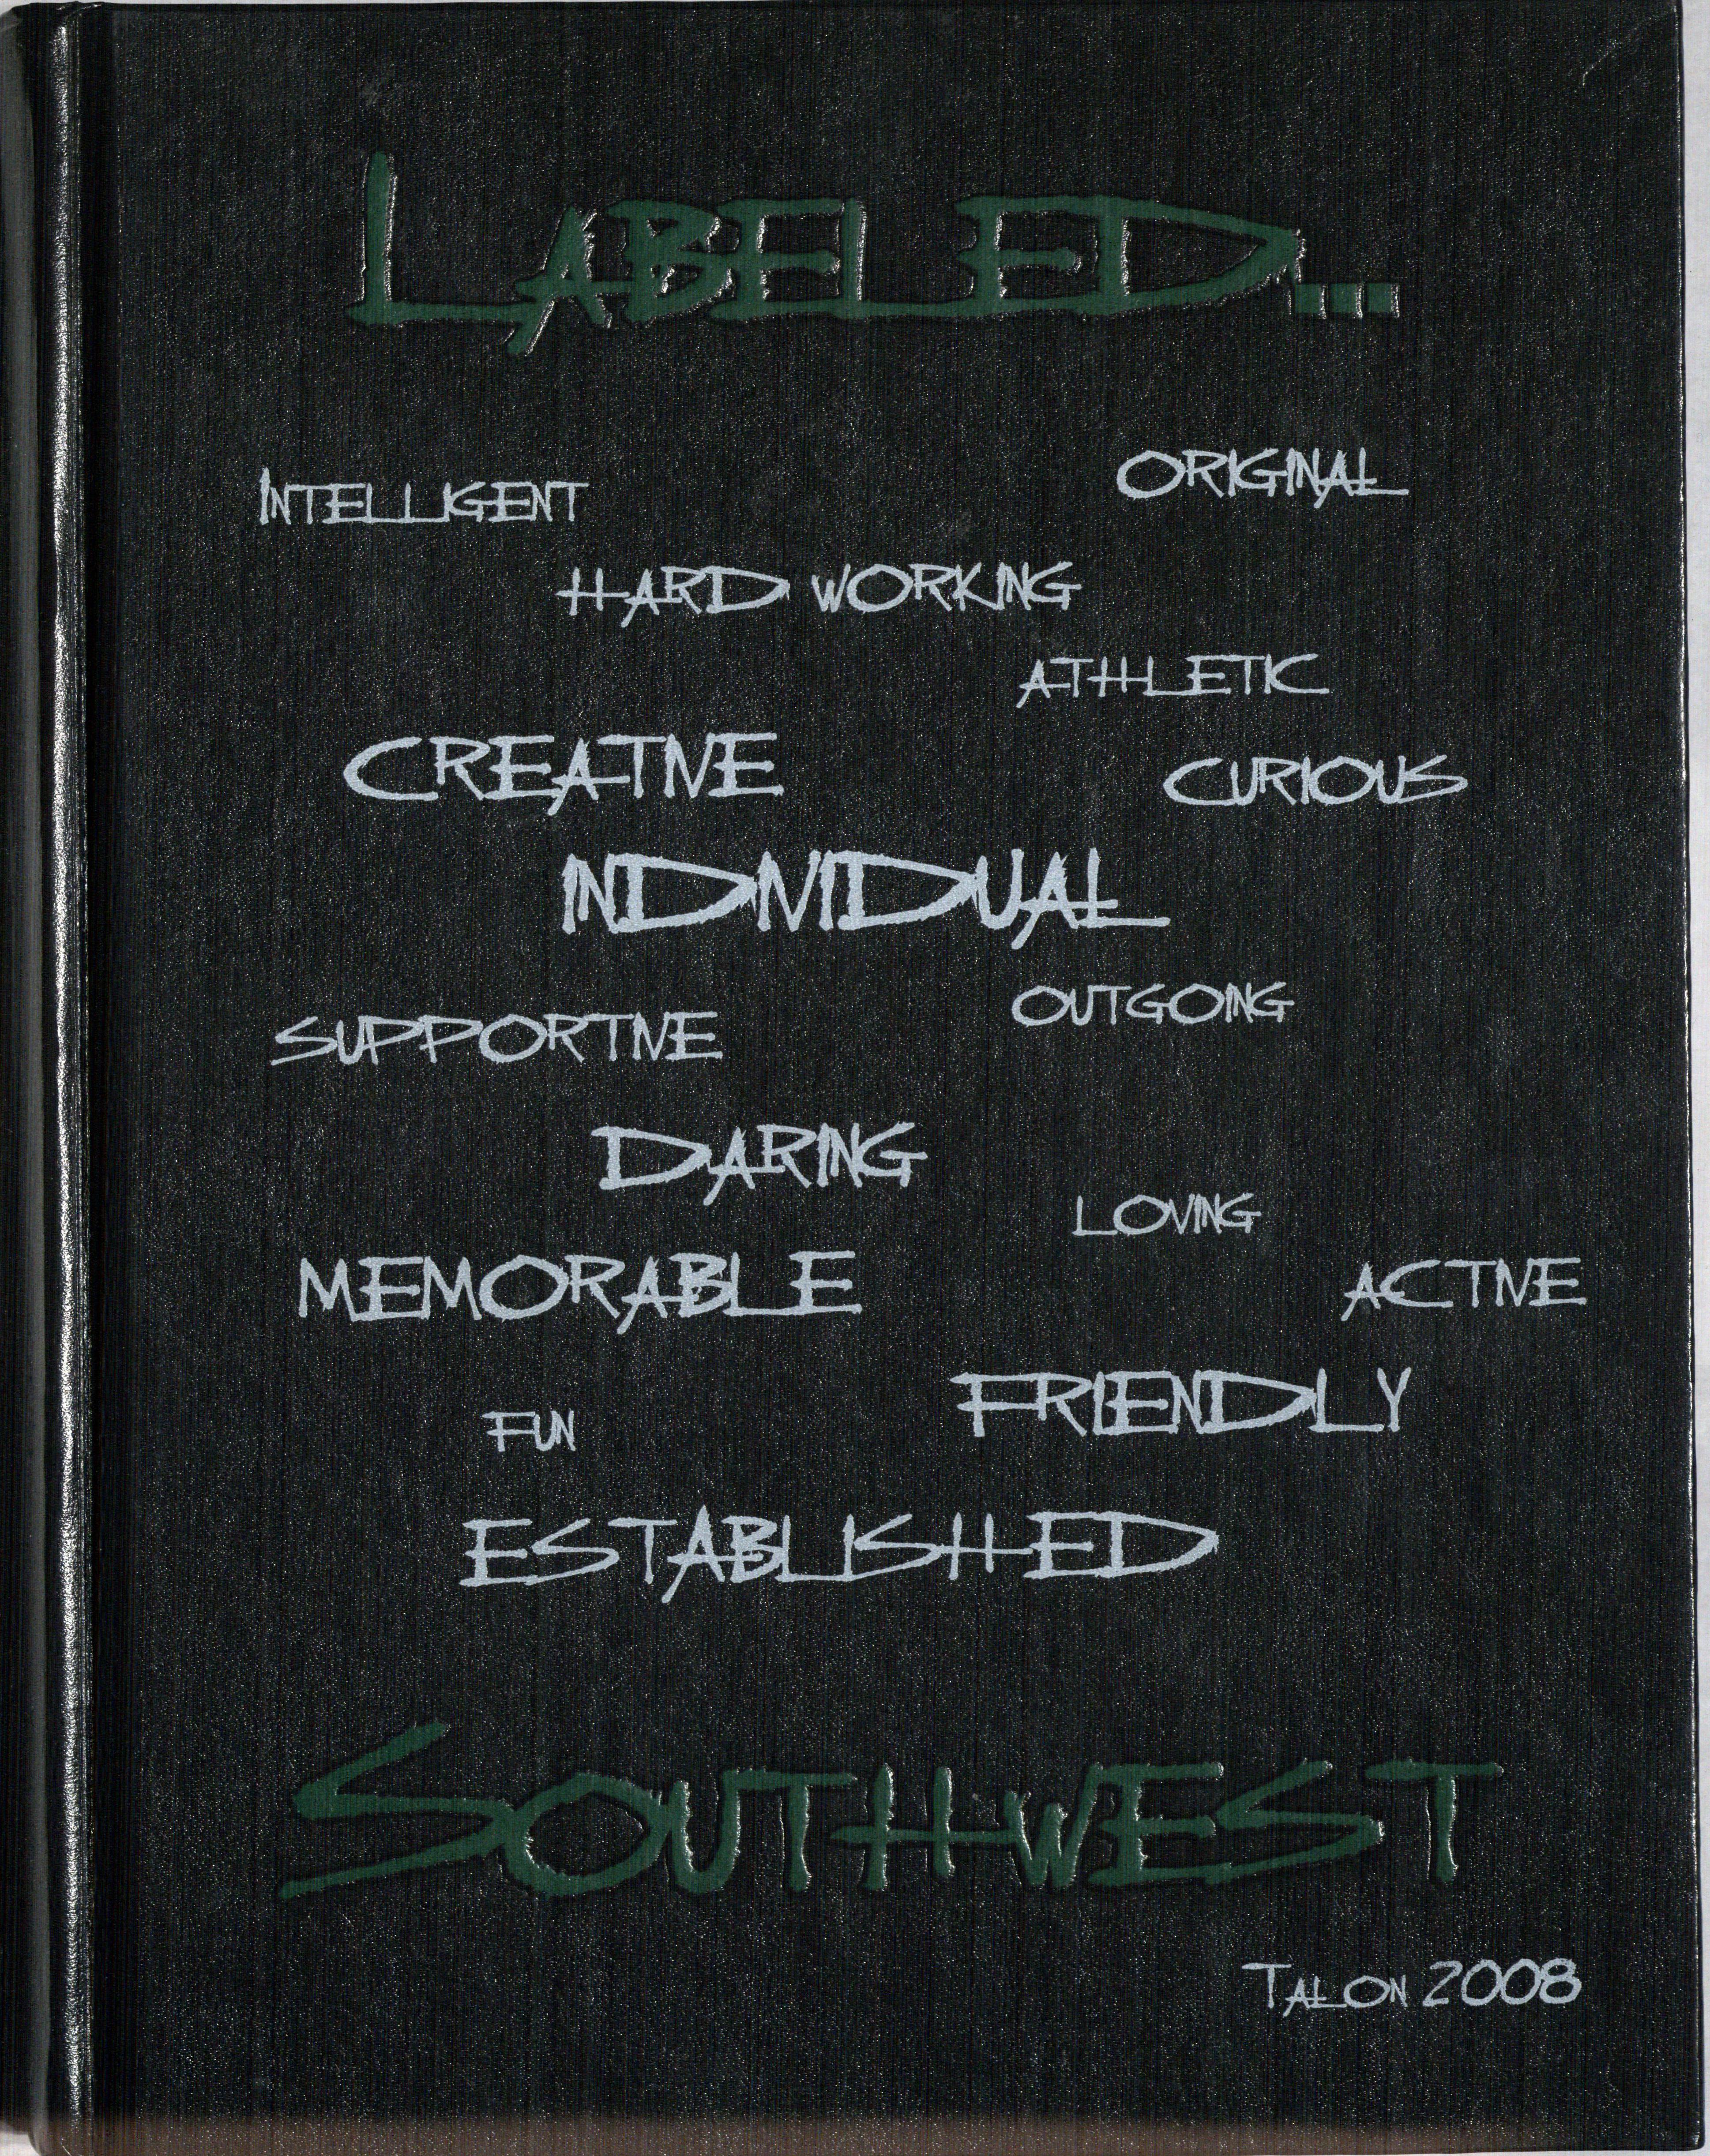 LABELED...
INTELLIGENT
ORIGINAL
HARD WORKING
ATHLETIC
CREATIVE
CURIOUS
INDIVIDUAL
OUTGOING
SUPPORTIVE
DARING
LOVING
MEMORABLE
ACTIVE
FRIENDLY
FUN
ESTABLISHED
SOUTHWEST
TALON 2008